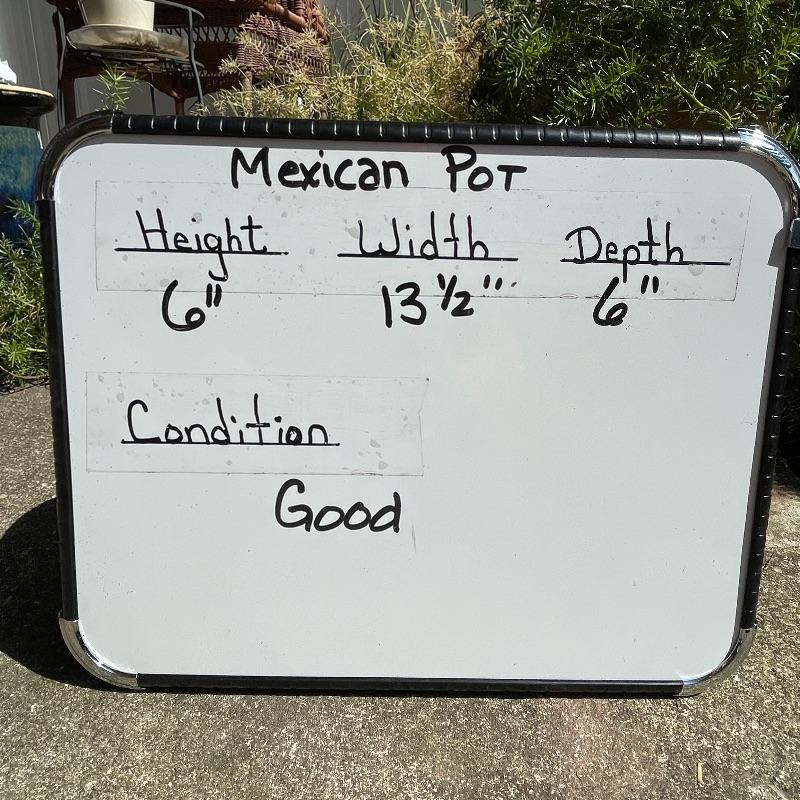 Mexican Pot
Height Width Depth
6" 13 1/2" 6"
Condition
Good